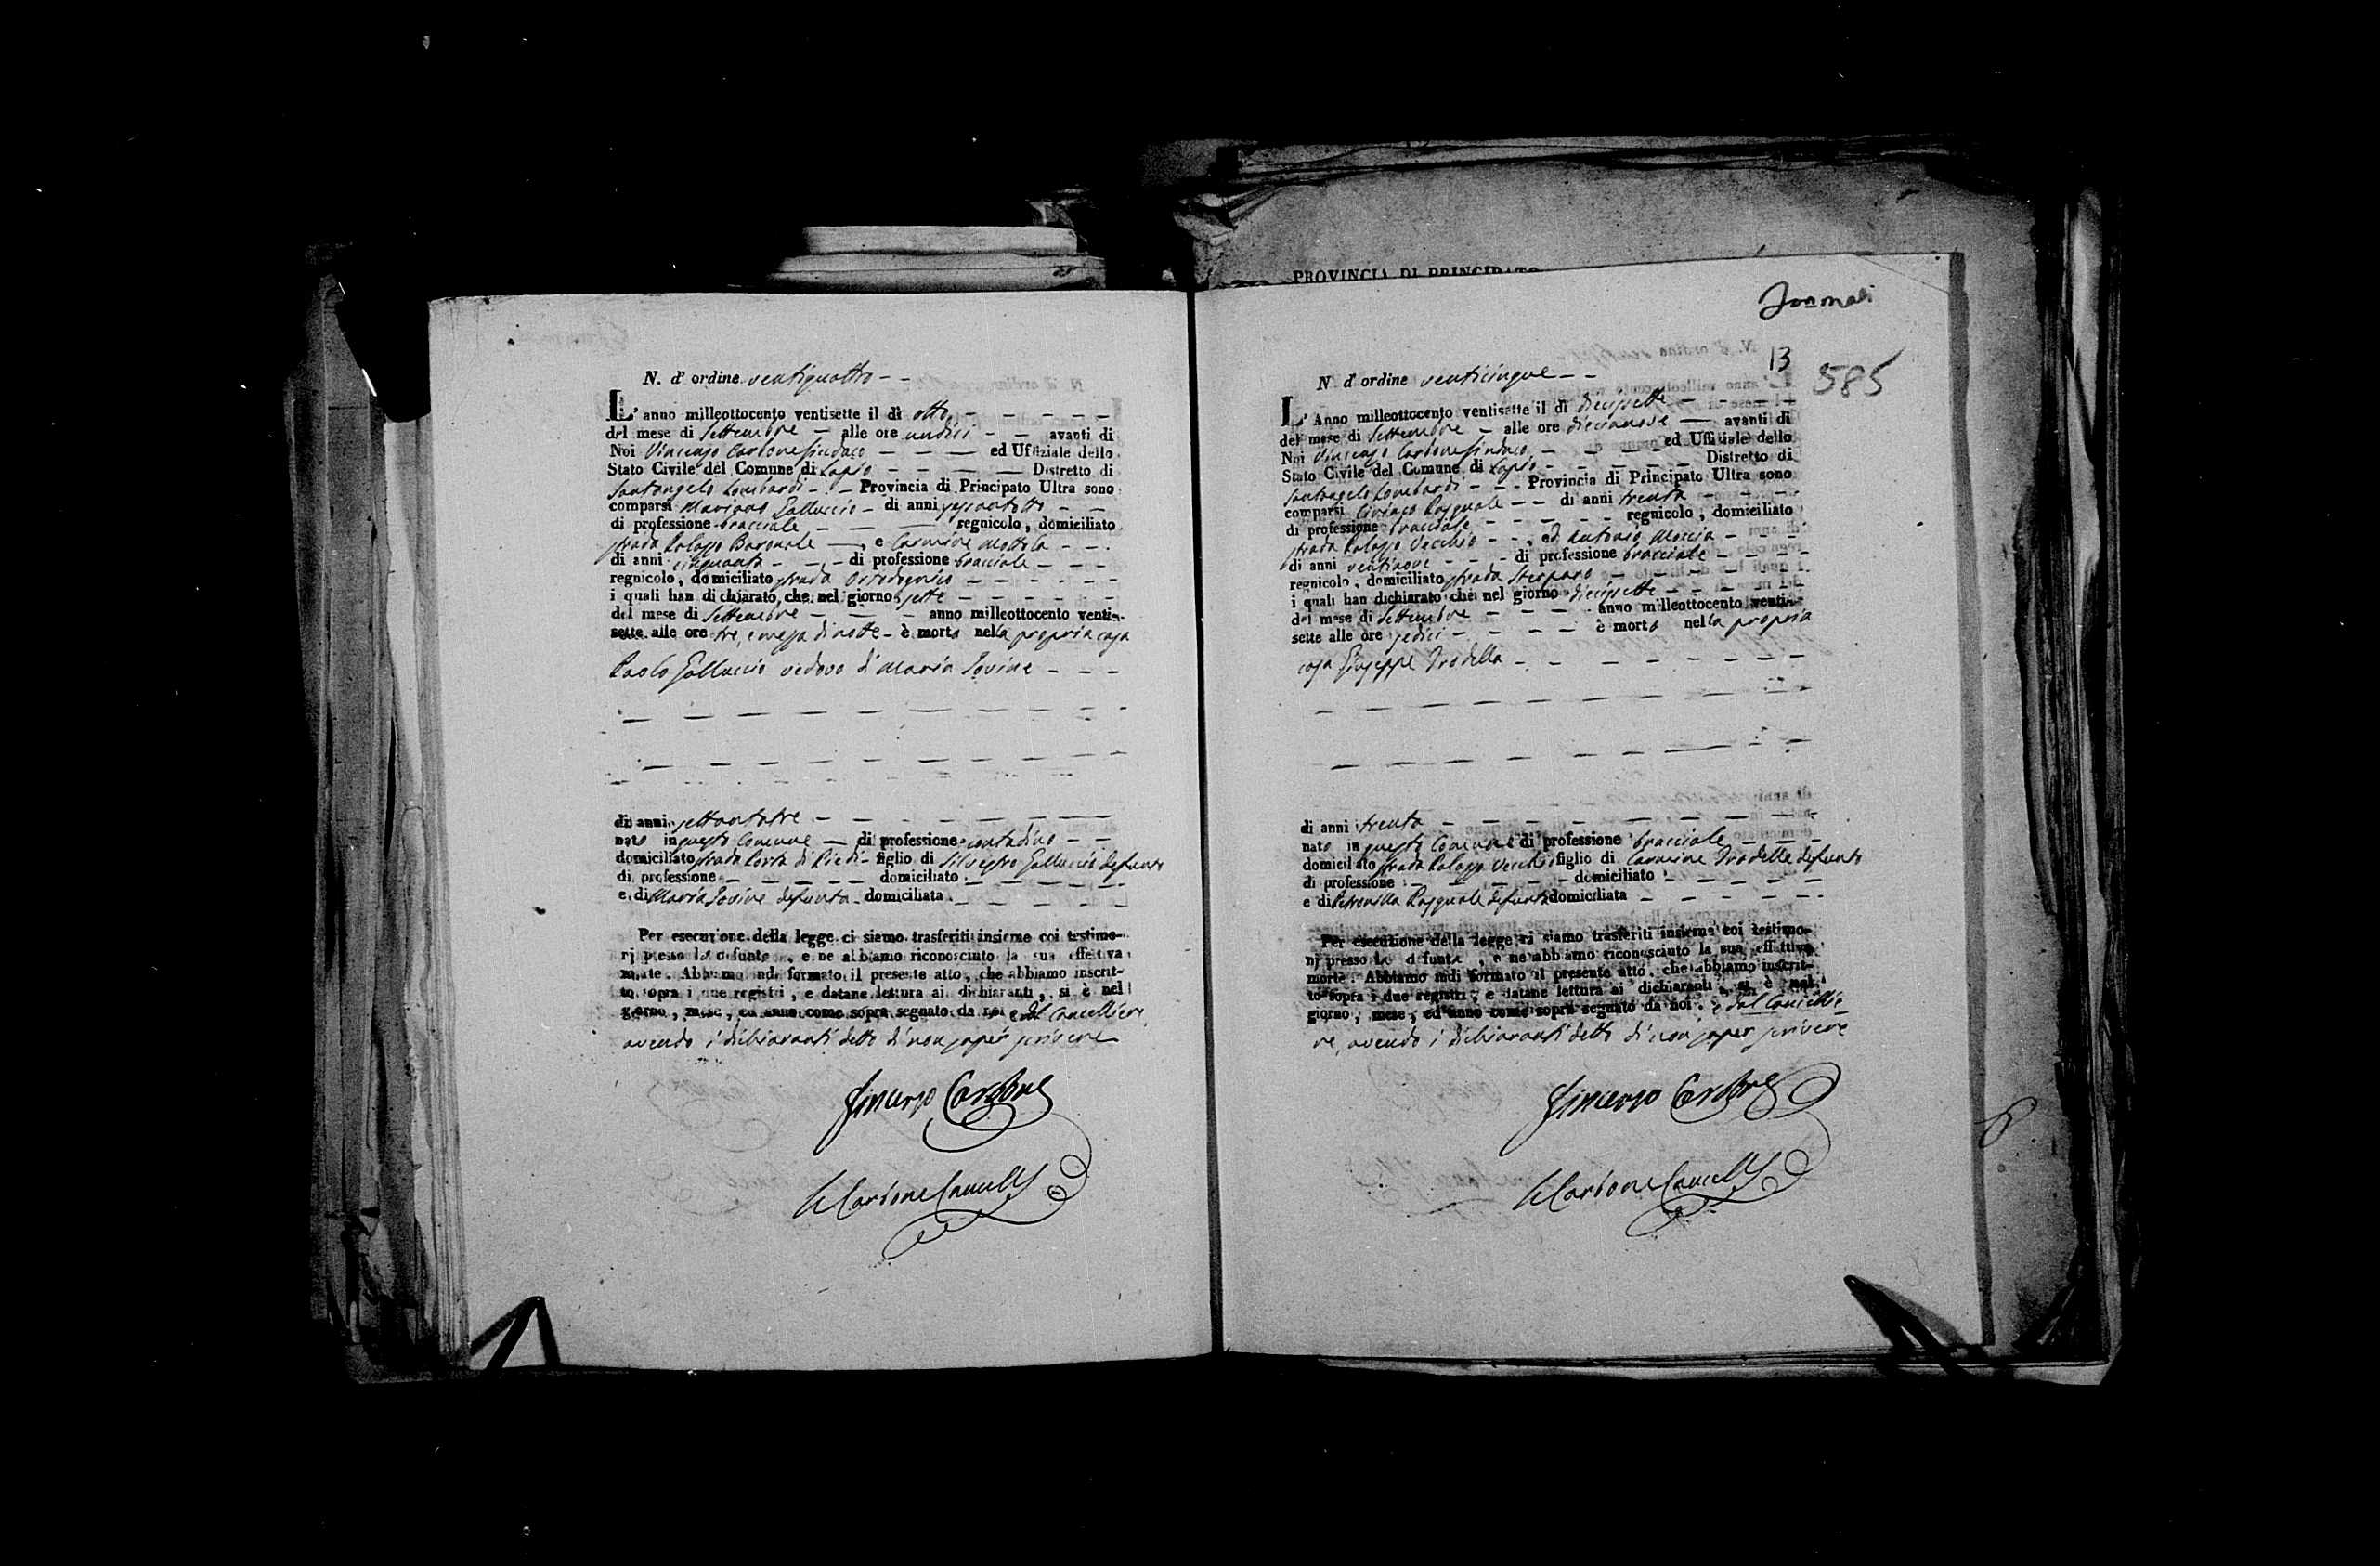 N. d' ordine ventiquattro - -
L' anno milleottocento ventisette il dì otto - - - - -
del mese di Settembre - alle ore undici - - avanti di
Noi Vincenzo Carbone Sindaco - - - ed Uffiziale dello
Stato Civile del Comune di Lapio - - - - Distretto di
Santangelo Lombardi - - Provincia di Principato Ultra sono
comparsi Mariano Galluccio - di anni sessantotto - -
di professione bracciale - - - regnicolo, domiciliato
strada Palazzo Baronale -, e Carmine Mottola - - -
di anni cinquanta - - - di professione bracciale - - -
regnicolo, domiciliato strada - - - - - -
i quali han dichiarato, che nel giorno sette - - - - -
del mese di Settembre - - - anno milleottocento venti-
sette alle ore tre, e mezza di notte - è morto nella propria casa
Paolo Galluccio vedovo di Maria Iovine - - -
di anni settantatre - - - - - - -
nato in questo Comune - di professione contadino - -
domiciliato strada Porta di Piedi - figlio di Silvestro Galluccio defunto
di professione - - - - - domiciliato - - - - -
e di Maria Iovine defunta - domiciliata - - - - -
Per esecuzione della legge ci siamo trasferiti insieme coi testimo-
nj presso lo defunto, e ne abbiamo riconosciuto la sua effettiva
morte. Abbiamo indi formato il presente atto, che abbiamo inscrit-
to sopra i due registri, e datane lettura ai dichiaranti, si è nel
giorno, mese, ed anno come sopra segnato da noi e dal Cancelliere
avendo i dichiaranti detto di non saper scrivere
Vincenzo Carbone
Carbone Cancell
PROVINCIA DI PRINCIPATO
13
585
N. d' ordine venticinque - -
L' Anno milleottocento ventisette il dì diecisette - - - -
del mese di Settembre - alle ore diecianove - avanti di
Noi Vincenzo Carbone Sindaco - - - ed Uffiziale dello
Stato Civile del Comune di Lapio - - - - - Distretto di
Santangelo Lombardi - - - Provincia di Principato Ultra sono
comparsi Ciriaco Pasquale - - di anni trenta - - - -
di professione bracciale - - - - - regnicolo, domiciliato
strada Palazzo Vecchio - -, ed Antonio Moccia - - - -
di anni ventinove - - - di professione bracciale - - - -
regnicolo, domiciliato strada - - - - - -
i quali han dichiarato che nel giorno diecisette - - - -
del mese di Settembre - - - anno milleottocento venti-
sette alle ore sedici - - - - è morto nella propria
casa Giuseppe Trodella - - - - - - - -
di anni trenta - - - - - - - -
nato in questo Comune di professione bracciale - - -
domiciliato strada Palazzo Vecchio figlio di Carmine Trodella defunto
di professione - - - - - domiciliato - - - - -
e di Petronilla Pasquale defunta domiciliata - - - - -
Per esecuzione della legge ci siamo trasferiti insieme coi testimo-
nj presso lo defunto, e ne abbiamo riconosciuto la sua effettiva
morte. Abbiamo indi formato il presente atto, che abbiamo inscrit-
to sopra i due registri, e datane lettura ai dichiaranti, si è nel
giorno, mese, ed anno come sopra segnato da noi e dal Cancellie
re, avendo i dichiaranti detto di non saper scrivere
Vincenzo Carbone
Carbone Cancell